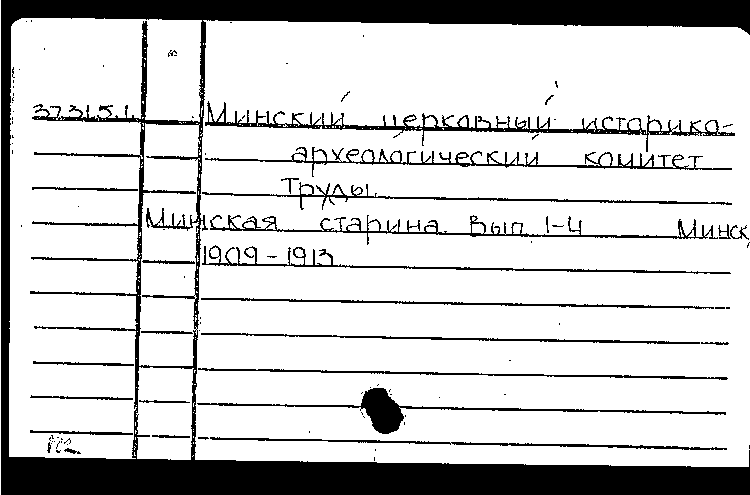 37315.1. Минский церковный историко-
археологический комитет
Труды.
Минская старина. Вып. 1-4 Минск,
1909-1913